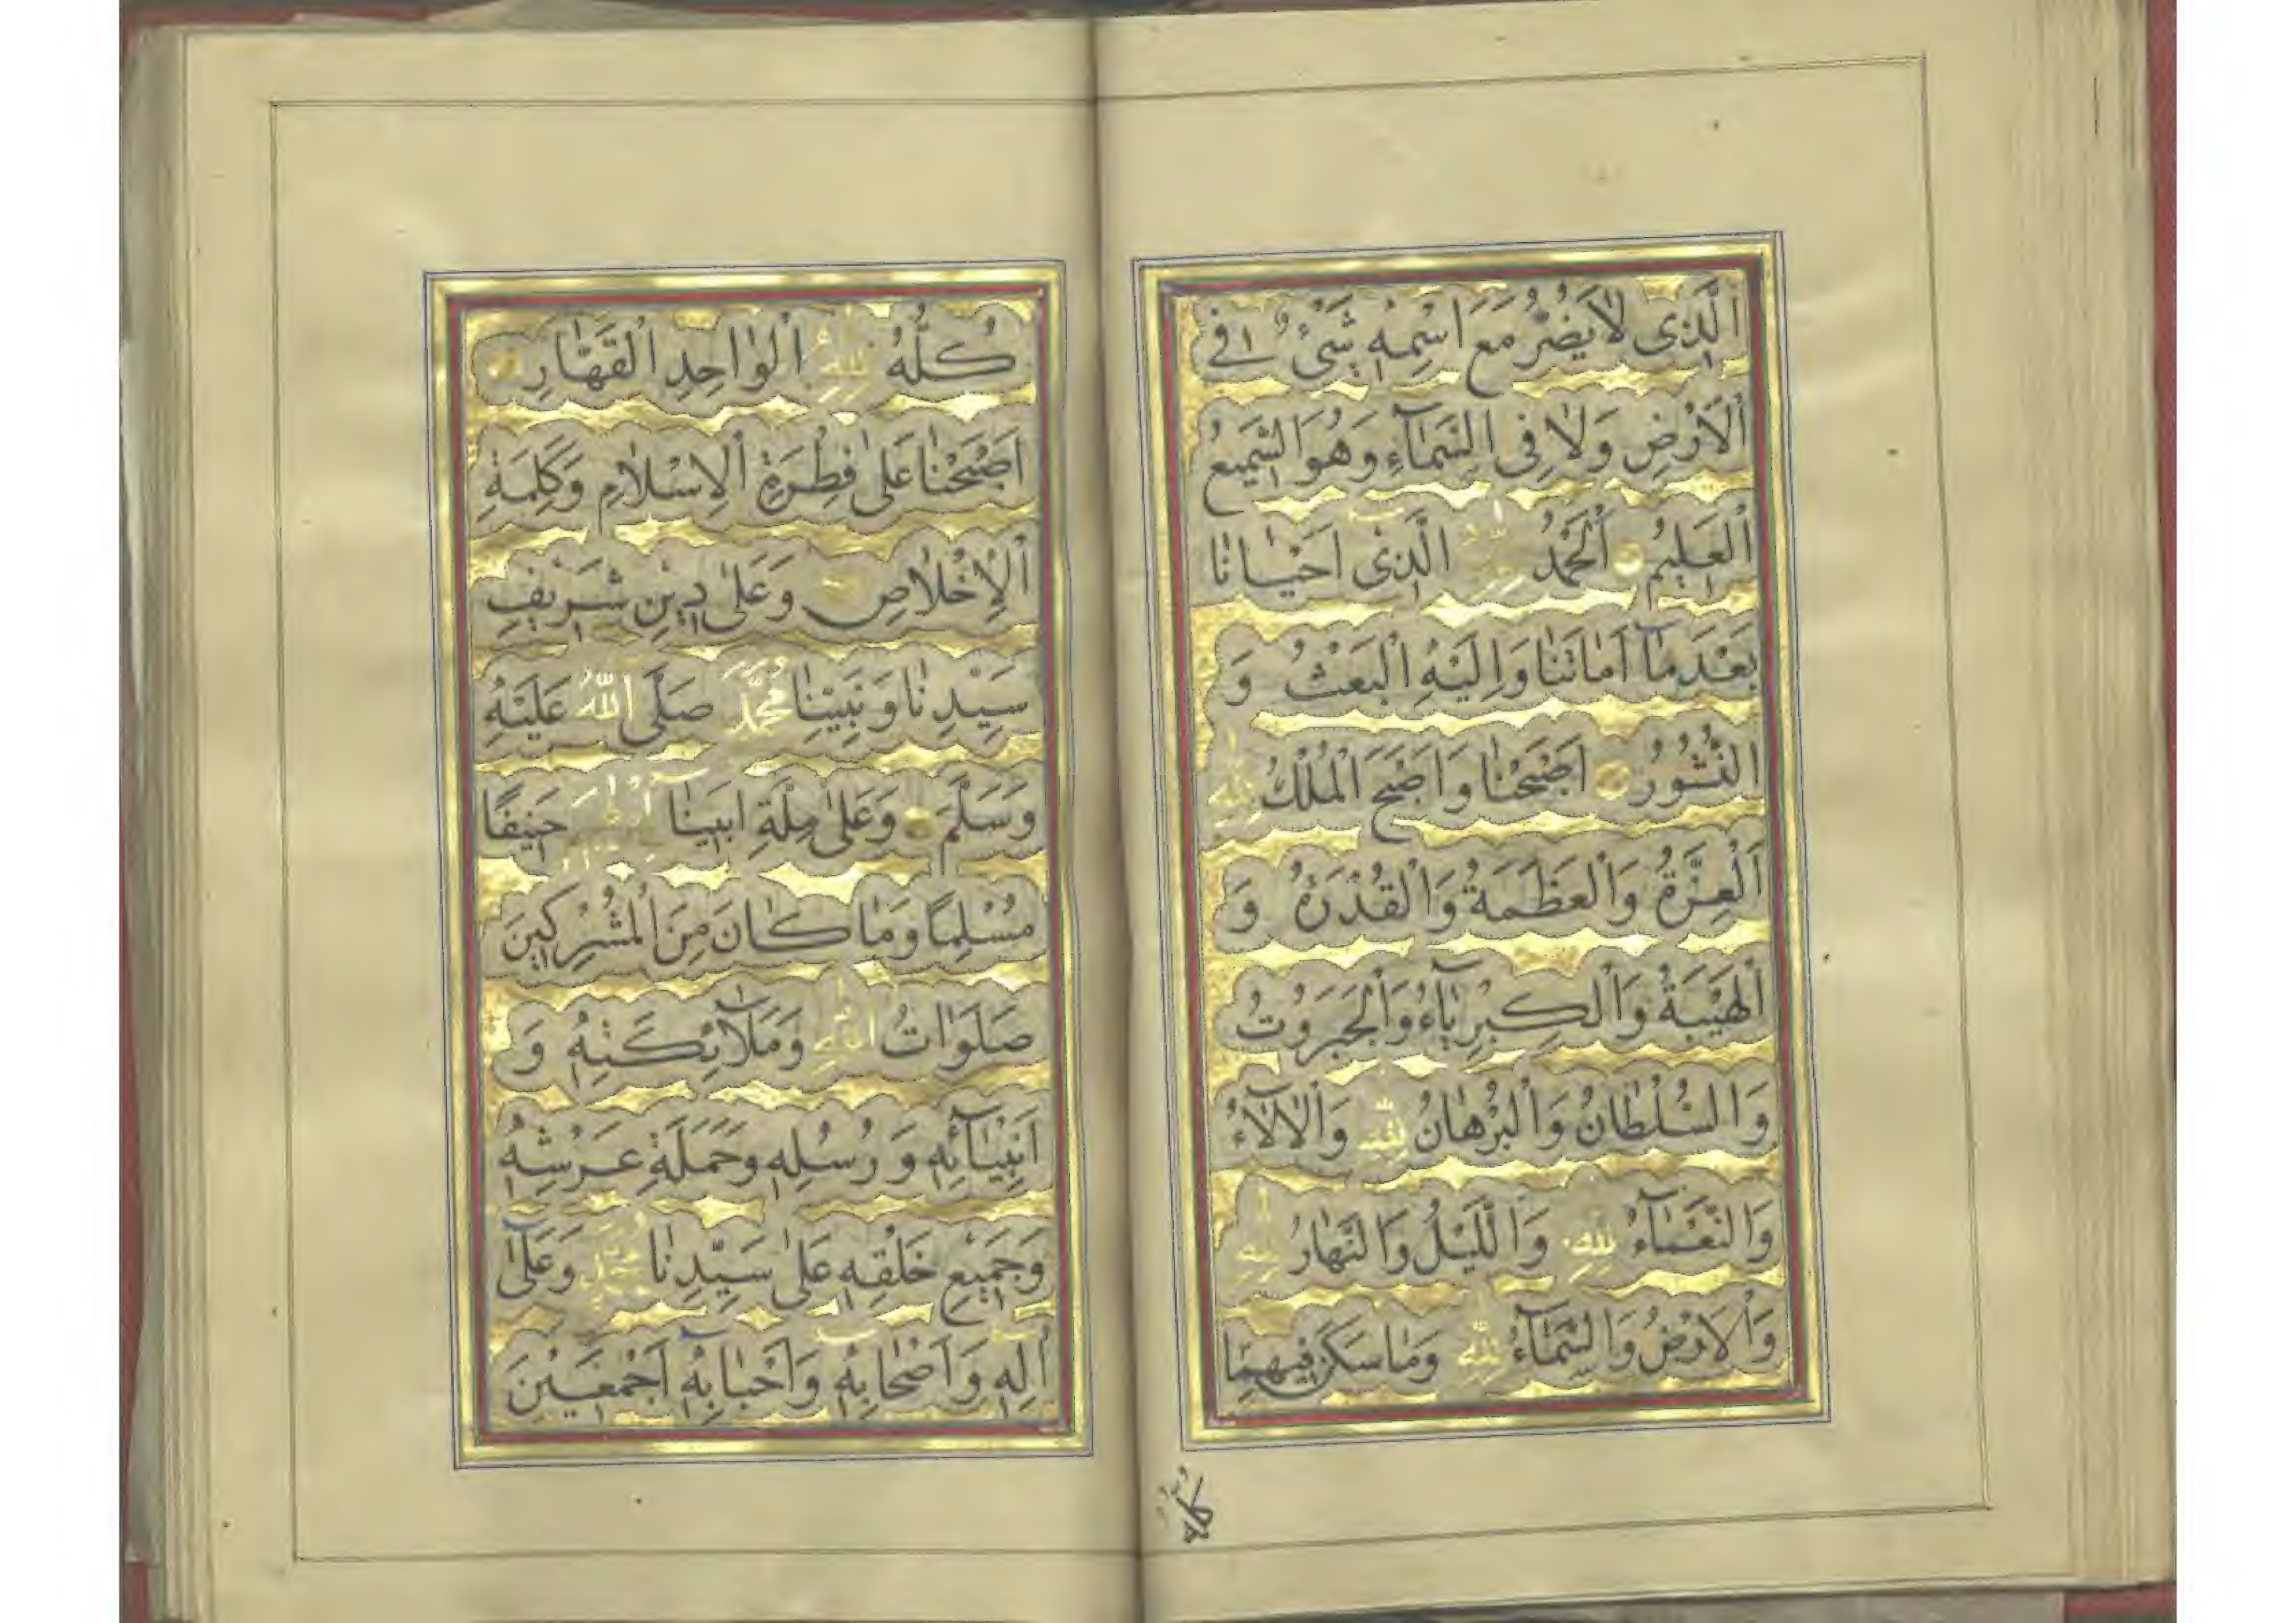 اَلَّذِى لَايَضُرُّ مَعَ اسْمِهِ شَىْءٌ فِى
اَلْاَرْضِ وَلَا فِى السَّمَآءِ وَهُوَ السَّمِيعُ
اَلْعَلِيمُ اَلْحَمْدُ لِلّٰهِ الَّذِى اَحْيَانَا
بَعْدَمَآ اَمَاتَنَا وَاِلَيْهِ الْبَعْثُ وَ
النُّشُورُ اَصْبَحْنَا وَاَصْبَحَ الْمُلْكُ لِلّٰهِ
اَلْعِزَّةُ وَالْعَظَمَةُ وَالْقُدْرَةُ وَ
اَلْهَيْبَةُ وَالْكِبْرِيَآءُ وَالْجَبَرُوتُ
وَالسُّلْطَانُ وَالْبُرْهَانُ لِلّٰهِ وَالْاٰلَآءُ
وَالنَّعْمَآءُ لِلّٰهِ وَالَّيْلُ وَالنَّهَارُ لِلّٰهِ
وَالْاَرْضُ وَالسَّمَآءُ لِلّٰهِ وَمَاسَكَنَ فِيهِمَا
كُلُّهُ
كُلُّهُ لِلّٰهِ الْوَاحِدِ الْقَهَّارِ
اَصْبَحْنَا عَلٰى فِطْرَةِ الْاِسْلَامِ وَكَلِمَةِ
اَلْاِخْلَاصِ وَعَلٰى دِينِ شَرِيفِ
سَيِّدِنَا وَنَبِيِّنَا مُحَمَّدٍ صَلَّى اللّٰهُ عَلَيْهِ
وَسَلَّمَ وَعَلٰى مِلَّةِ اَبِينَآ اِبْرٰهِيمَ حَنِيفًا
مُسْلِمًا وَمَا كَانَ مِنَ الْمُشْرِكِينَ
صَلَوَاتُ اللّٰهِ وَمَلَآئِكَتِهِ وَ
اَنْبِيَآئِهِ وَ رُسُلِهِ وَحَمَلَةِ عَرْشِهِ
وَجَمِيعِ خَلْقِهِ عَلٰى سَيِّدِنَا مُحَمَّدٍ وَعَلٰٓى
اٰلِهِ وَاَصْحَابِهِ وَاَحْبَابِهِ اَجْمَعِينَ